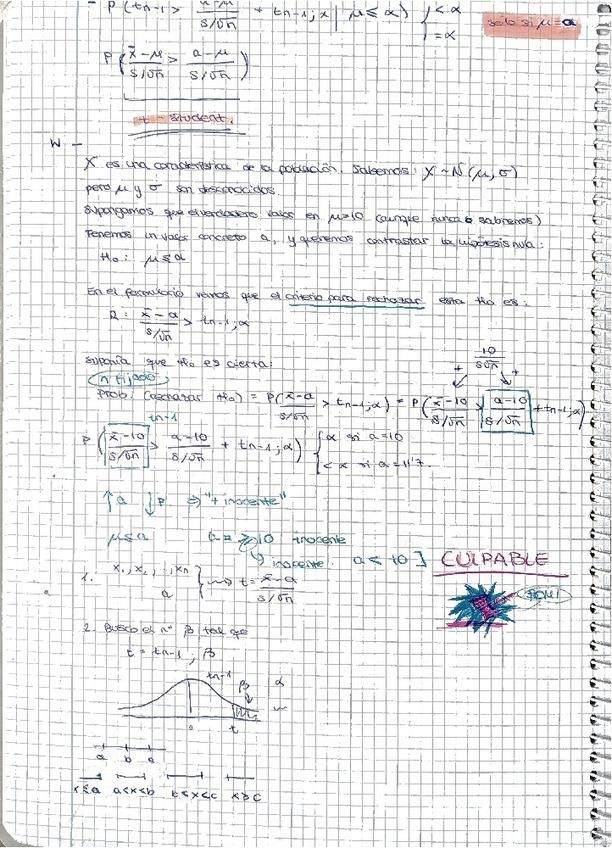 - P(tn-1 > (a-μ)/(s/√n) + tn-1;α | μ ≤ α) { < α
= α
solo si μ = a
P( (x̄-μ)/(s/√n) > (a-μ)/(s/√n) )
t - Student.
X es una característica de la población. Sabemos: X ~ N(μ, σ)
pero μ y σ son desconocidos.
Supongamos que el verdadero valor en μ=10 (aunque nunca lo sabremos)
Tenemos un valor concreto a, y queremos contrastar la hipótesis nula:
H₀: μ ≤ a
En el formulario vemos que el criterio para rechazar esta H₀ es:
R: (x̄-a)/(s/√n) > tn-1;α
10/(s/√n)
suponía que H₀ es cierta:
n fijado
Prob. (rechazar H₀) = P( (x̄-a)/(s/√n) > tn-1;α) = P( (x̄-10)/(s/√n) > (a-10)/(s/√n) + tn-1;α)
tn-1
P( (x̄-10)/(s/√n) > (a-10)/(s/√n) + tn-1;α) { α si a=10
< α si a = 11'7.
↑a ↓P ⇒ "+ inocente"
μ ≤ a a = ≥ 10 inocente
↳ inocente. a < 10 ] CULPABLE
1. x₁, x₂, ..., xn
a } ⟹ t = (x̄-a)/(s/√n)
2. Busco el nº β tal que
t = tn-1; β
tn-1 β α
0 t
a b c
x≤a a<x<b b≤x<c x≥c